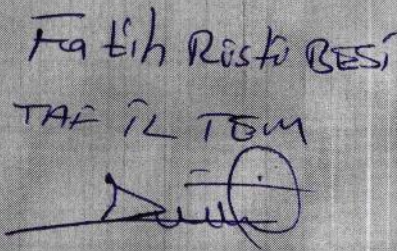 Fatih Rüştü BESİ
TAF İL TEM